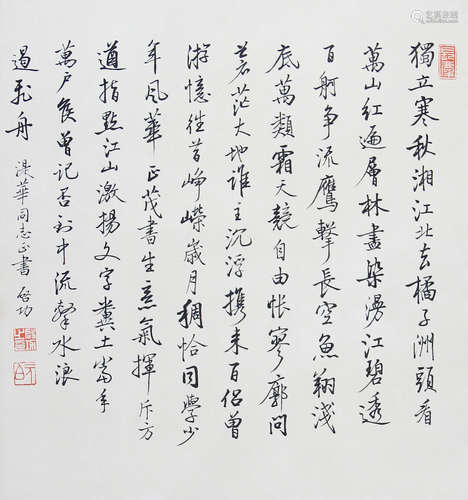 獨立寒秋湘江北去橘子洲頭看
萬山紅遍層林盡染漫江碧透
百舸争流鷹擊長空魚翔淺
底萬類霜天競自由悵寥廓問
蒼茫大地誰主沉浮携来百侣曾
游憶往昔崢嶸歲月稠恰同學少
年風華正茂書生意氣揮斥方
遒指點江山激揚文字糞土當年
萬户侯曾記否到中流擊水浪
遏飛舟
華同志正書 啓功